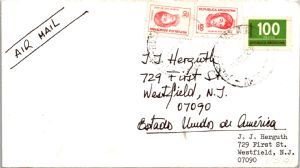 AIR MAIL
REPUBLICA ARGENTINA
100
J. J. Herguth
729 First St
Westfield, N.J.
07090
Estados Unidos de América
J. J. Herguth
729 First St.
Westfield, N.J.
07090